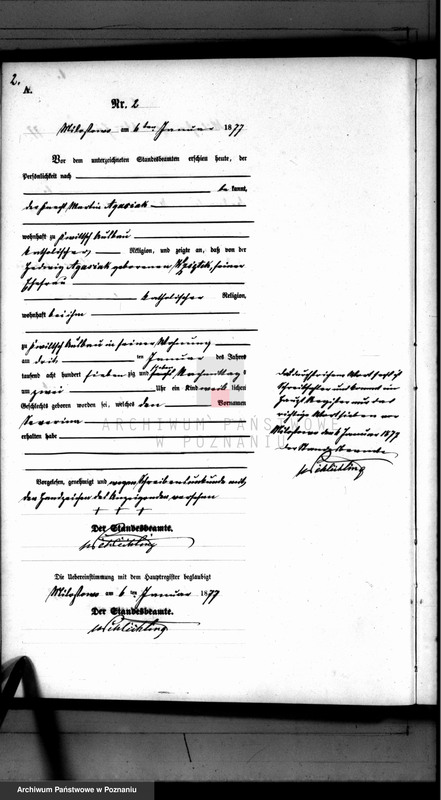 2.
A.
Nr. 2
Milostowo am 6 ten Januar 1877
Vor dem unterzeichneten Standesbeamten erschien heute, der
Persönlichkeit nach
be kannt,
der Knecht Martin Agaciak
wohnhaft zu
katholischer Religion, und zeigte an, daß von der
Hedwig Agaciak geborenen seiner
Ehefrau
katholischer Religion,
wohnhaft bei ihm
zu in seiner Wohnung
am drei ten Januar des Jahres
tausend acht hundert sieben zig und sieben Nachmittags
um zwei Uhr ein Kind weib lichen
Geschlechts geboren worden sei, welches den Vornamen
Severina
erhalten habe
Vorgelesen, genehmigt und wegen Schreibensunkunde mit
den Handzeichen des Anzeigenden versehen
+ + +
Der Standesbeamte.
v Schlichting
Die Uebereinstimmung mit dem Hauptregister beglaubigt
Milostowo am 6 ten Januar 1877
Der Standesbeamte.
v Schlichting
das durchstrichene Wort ist
Schreibfehler und kommt im
Haupt Register nur das
richtige Wort sieben vor
Milostowo den 6 Januar 1877
der Standesbeamte
v Schlichting
ARCHIWUM PAŃSTWOWE
W POZNANIU
Archiwum Państwowe w Poznaniu